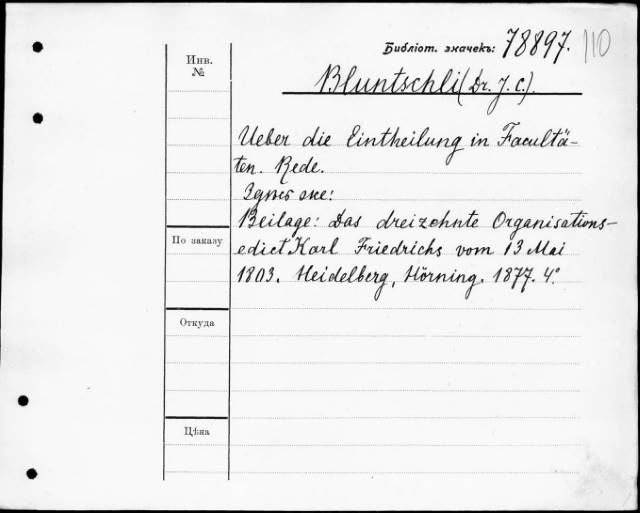 Библіот. значекъ: 78897. 110
Инв. №
Bluntschli (Dr. J. C.).
Ueber die Eintheilung in Facultä-
ten. Rede.
же:
Beilage: Das dreizehnte Organisations-
edict Karl Friedrichs vom 13 Mai
1803. Heidelberg, Hörning. 1877. 4°.
По заказу
Откуда
Цѣна